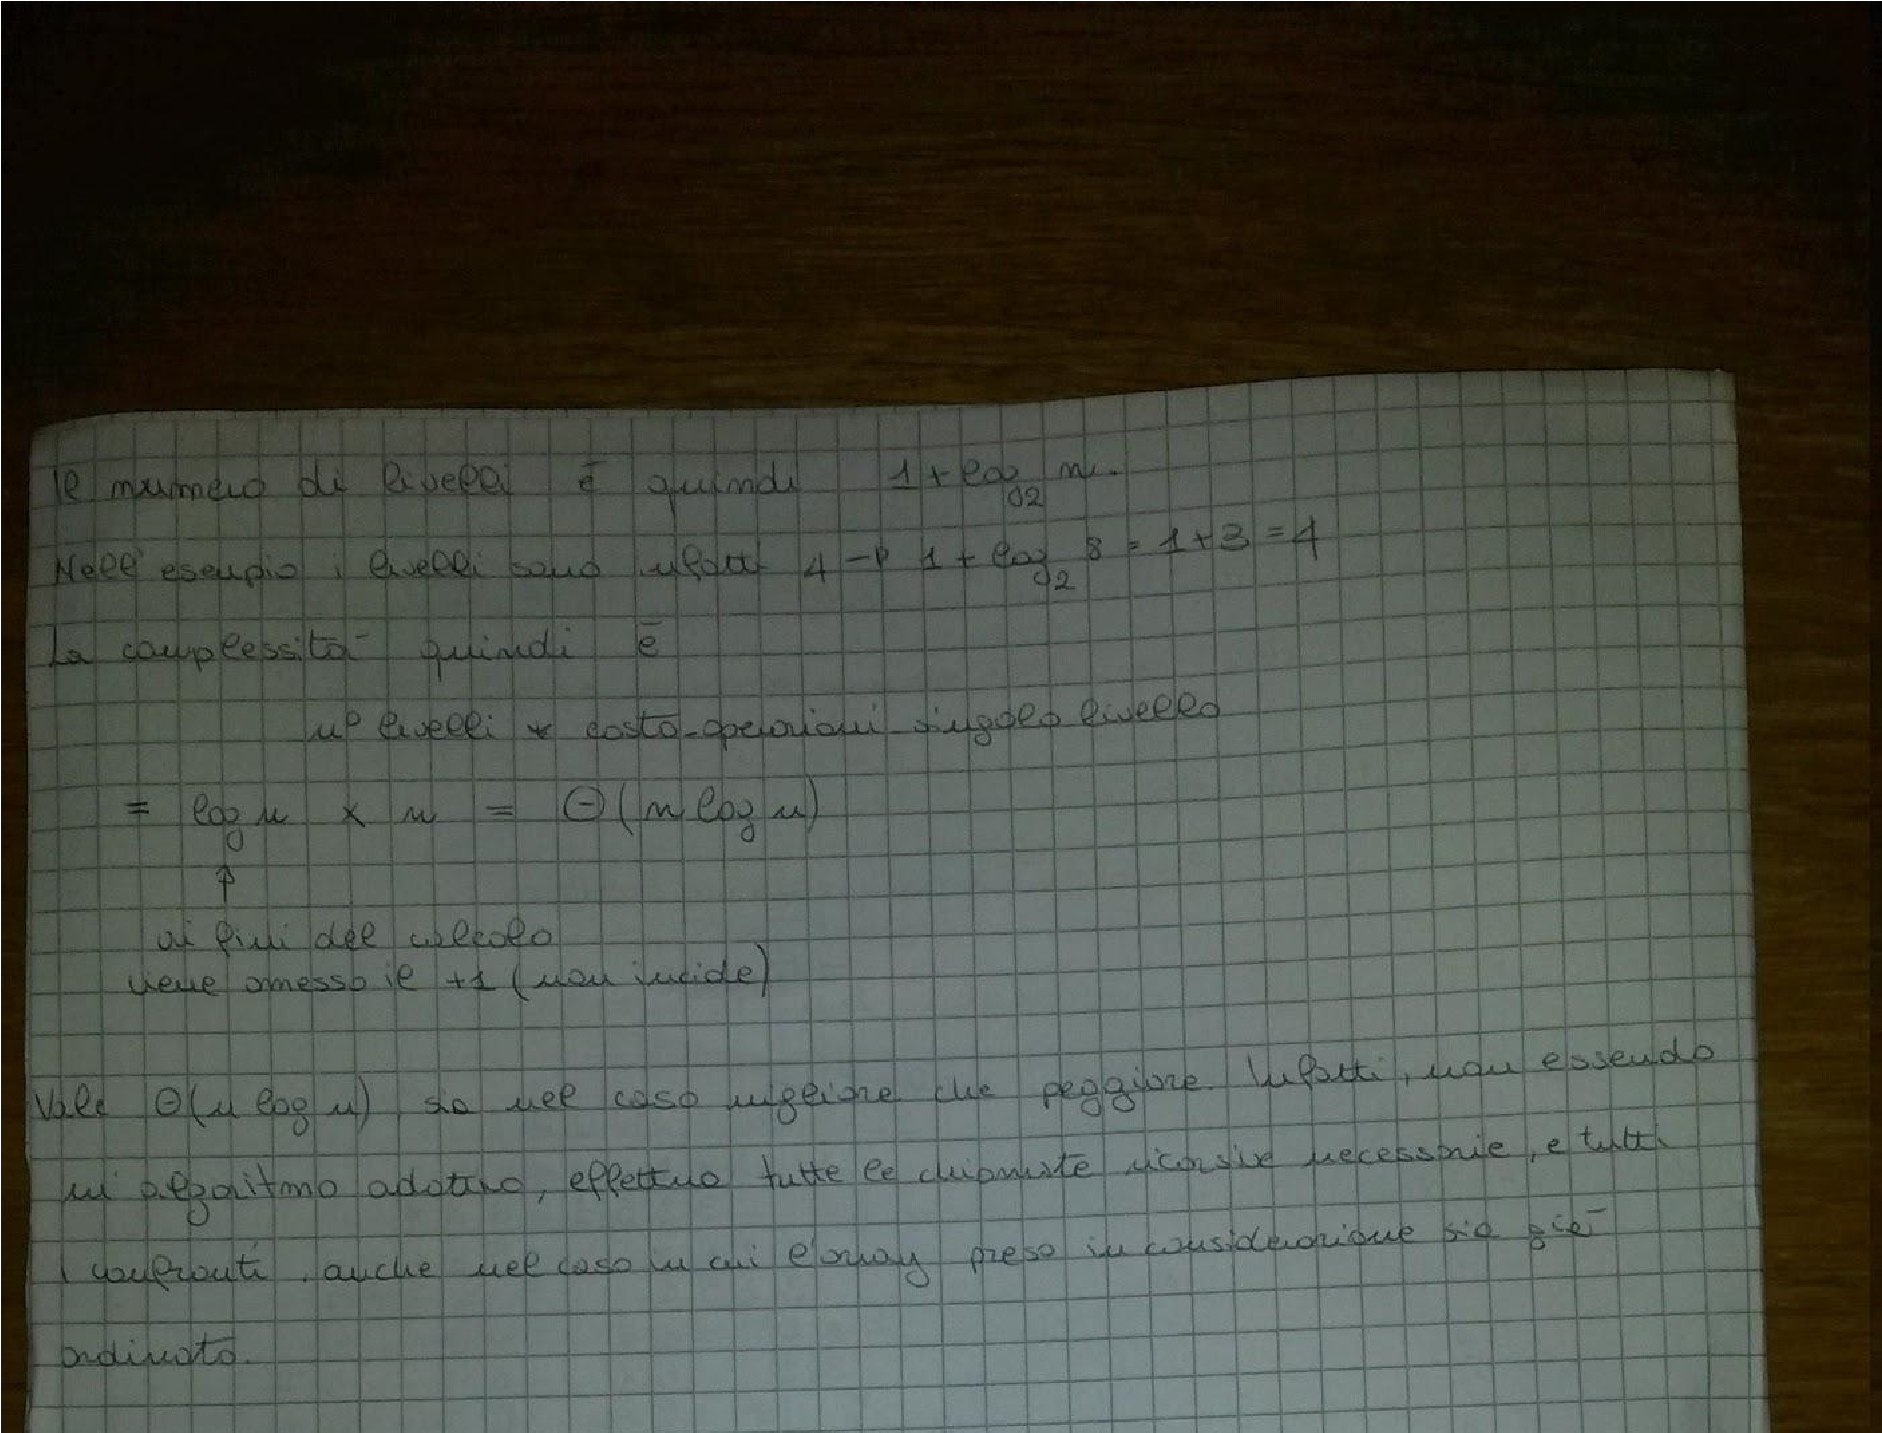 Il numero di livelli è quindi 1 + log₂ n.
Nell'esempio i livelli sono infatti 4 → 1 + log₂ 8 = 1+3 = 4
La complessità quindi è
n° livelli * costo-operazioni-singolo livello
= log n × n = Θ(n log n)
↑
ai fini del calcolo
viene omesso il +1 (non incide)
Vale Θ(n log n) sia nel caso migliore che peggiore. Infatti, non essendo
un algoritmo adattivo, effettuo tutte le chiamate ricorsive necessarie, e tutti
i confronti, anche nel caso in cui l'array preso in considerazione sia già
ordinato.